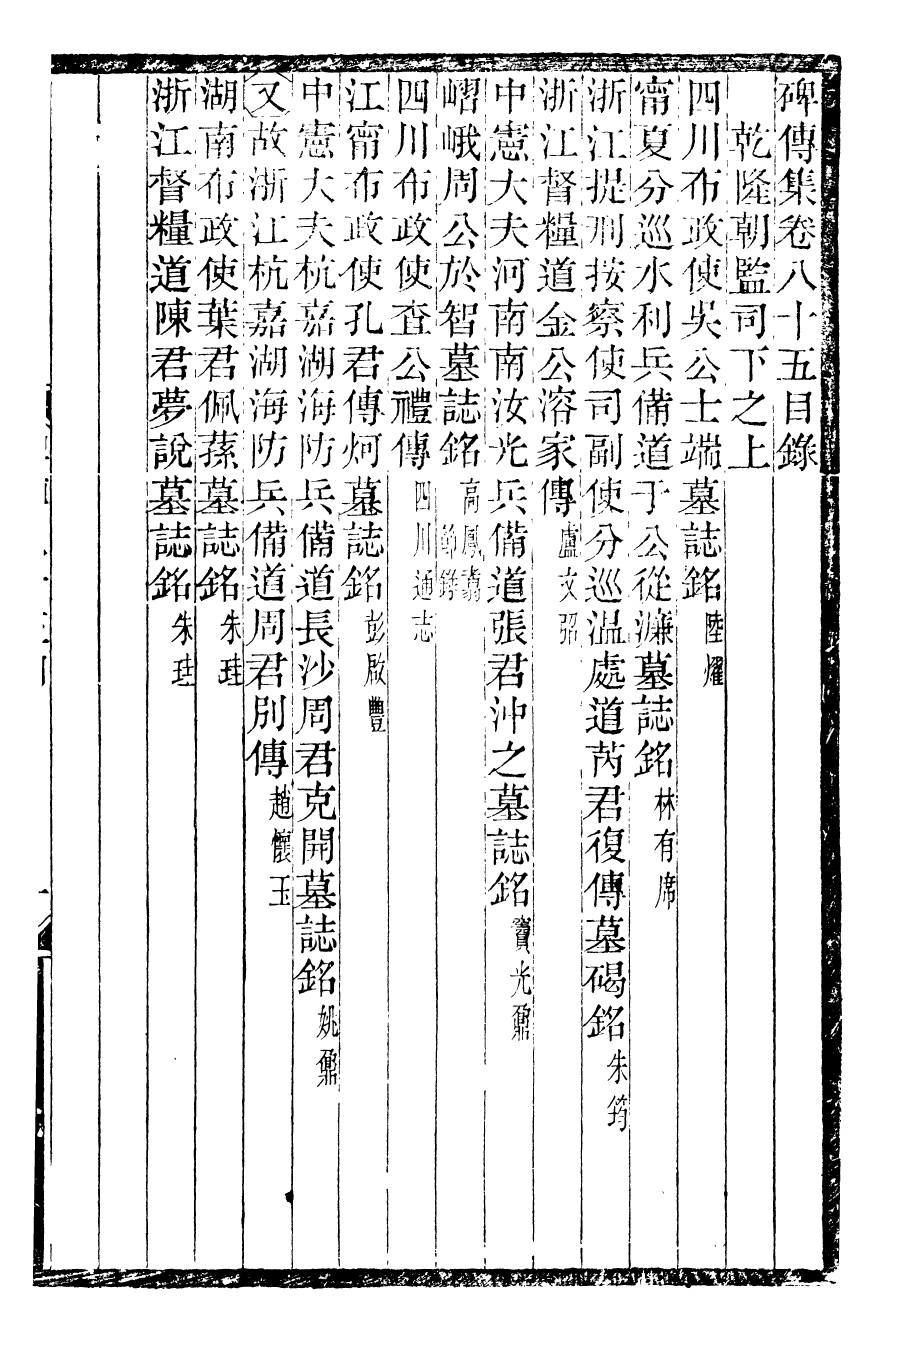 碑傳集卷八十五目錄
乾隆朝監司下之上
四川布政使吳公士端墓誌銘 陸燿
甯夏分巡水利兵備道于公從濂墓誌銘 林有席
浙江提刑按察使司副使分巡温處道芮君復傳墓碣銘 朱筠
浙江督糧道金公溶家傳 盧文弨
中憲大夫河南南汝光兵備道張君沖之墓誌銘 竇光鼐
嶍峨周公於智墓誌銘 高鳳翥 節錄
四川布政使查公禮傳 四川通志
江甯布政使孔君傳炣墓誌銘 彭啟豐
中憲大夫杭嘉湖海防兵備道長沙周君克開墓誌銘 姚鼐
又故浙江杭嘉湖海防兵備道周君別傳 趙懷玉
湖南布政使葉君佩蓀墓誌銘 朱珪
浙江督糧道陳君夢說墓誌銘 朱珪